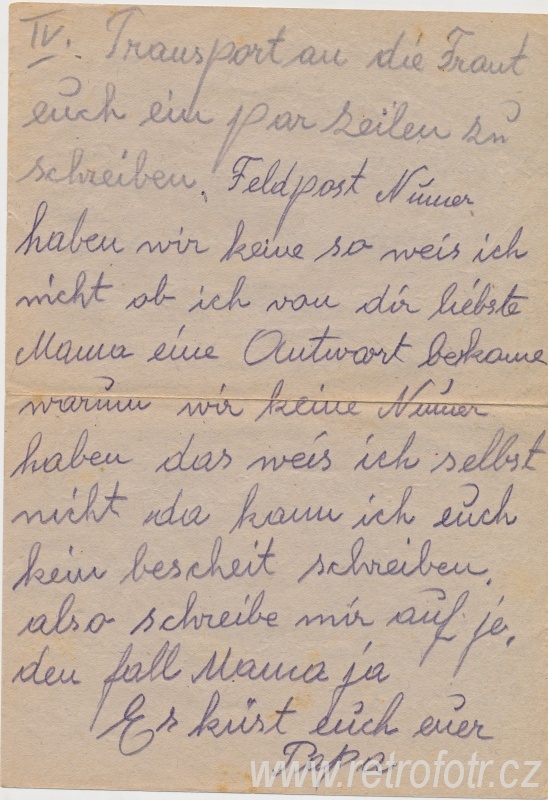 IV. Transport an die Fraut
euch ein par zeilen zu
schreiben. Feldpost Númer
haben wir keine so weis ich
nicht ob ich von dir liebste
Mama eine Antwort bekome
warum wir keine Númer
haben das weis ich selbst
nicht da kann ich euch
kein bescheit schreiben.
also schreibe mir auf je,
den fall Mama ja
Es küst euch euer
Papa
www.retrofotr.cz